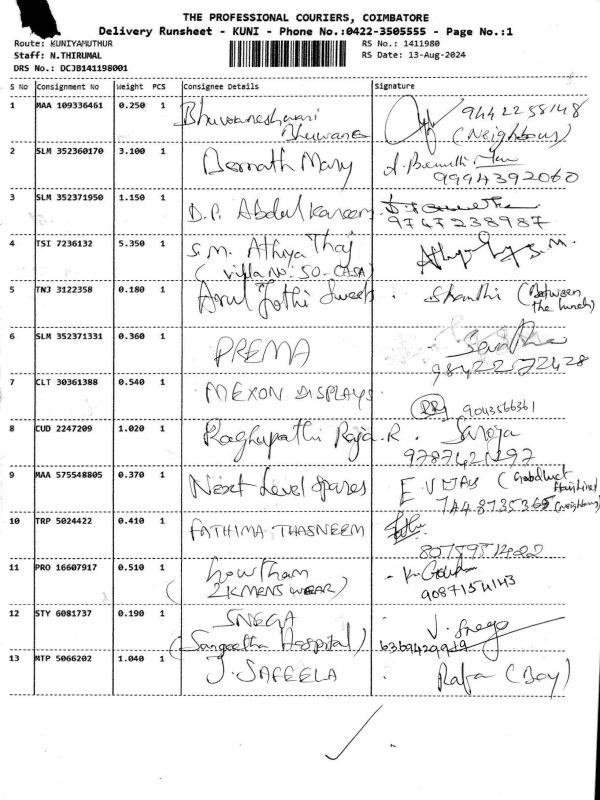 THE PROFESSIONAL COURIERS, COIMBATORE
Delivery Runsheet - KUNI - Phone No.:0422-3505555 - Page No.:1
Route: KUNIYAMUTHUR RS No.: 1411980
Staff: N.THIRUMAL RS Date: 13-Aug-2024
DRS No.: DCJB141198001
S No Consignment No Weight PCS Consignee Details Signature
1 MAA 109336461 0.250 1 Bhuvaneshwari 9442258148
Bhuwana (Neighbour)
2 SLM 352360170 3.100 1 Bernath Mary
9994392060
3 SLM 352371950 1.150 1 D.P. Abdul Kareem
9747238987
4 TSI 7236132 5.350 1 S.M. Athiya Thaj S.M.
(Villa No: 50-CASA)
5 TNJ 3122358 0.180 1 Arul Jothi Sweets Shanthi (Between
the lunch)
6 SLM 352371331 0.360 1 PREMA
9842272428
7 CLT 30361388 0.540 1 MEXON DISPLAYS
9043566361
8 CUD 2247209 1.020 1 Raghupathi Raja.R. Saroja
9787421297
9 MAA 575548805 0.370 1 Next Level Spares E.VIJAY (Goodluck
7448735365 (neighbour)
10 TRP 5024422 0.410 1 FATHIMA THASNEEM
11 PRO 16607917 0.510 1 Gowtham
(2K MENS WEAR) 9087154143
12 STY 6081737 0.190 1 SNEGA V. Snega
(Sangeetha Hospital) 6369429919
13 MTP 5066202 1.040 1 J. SAFEELA Rafa (Boy)